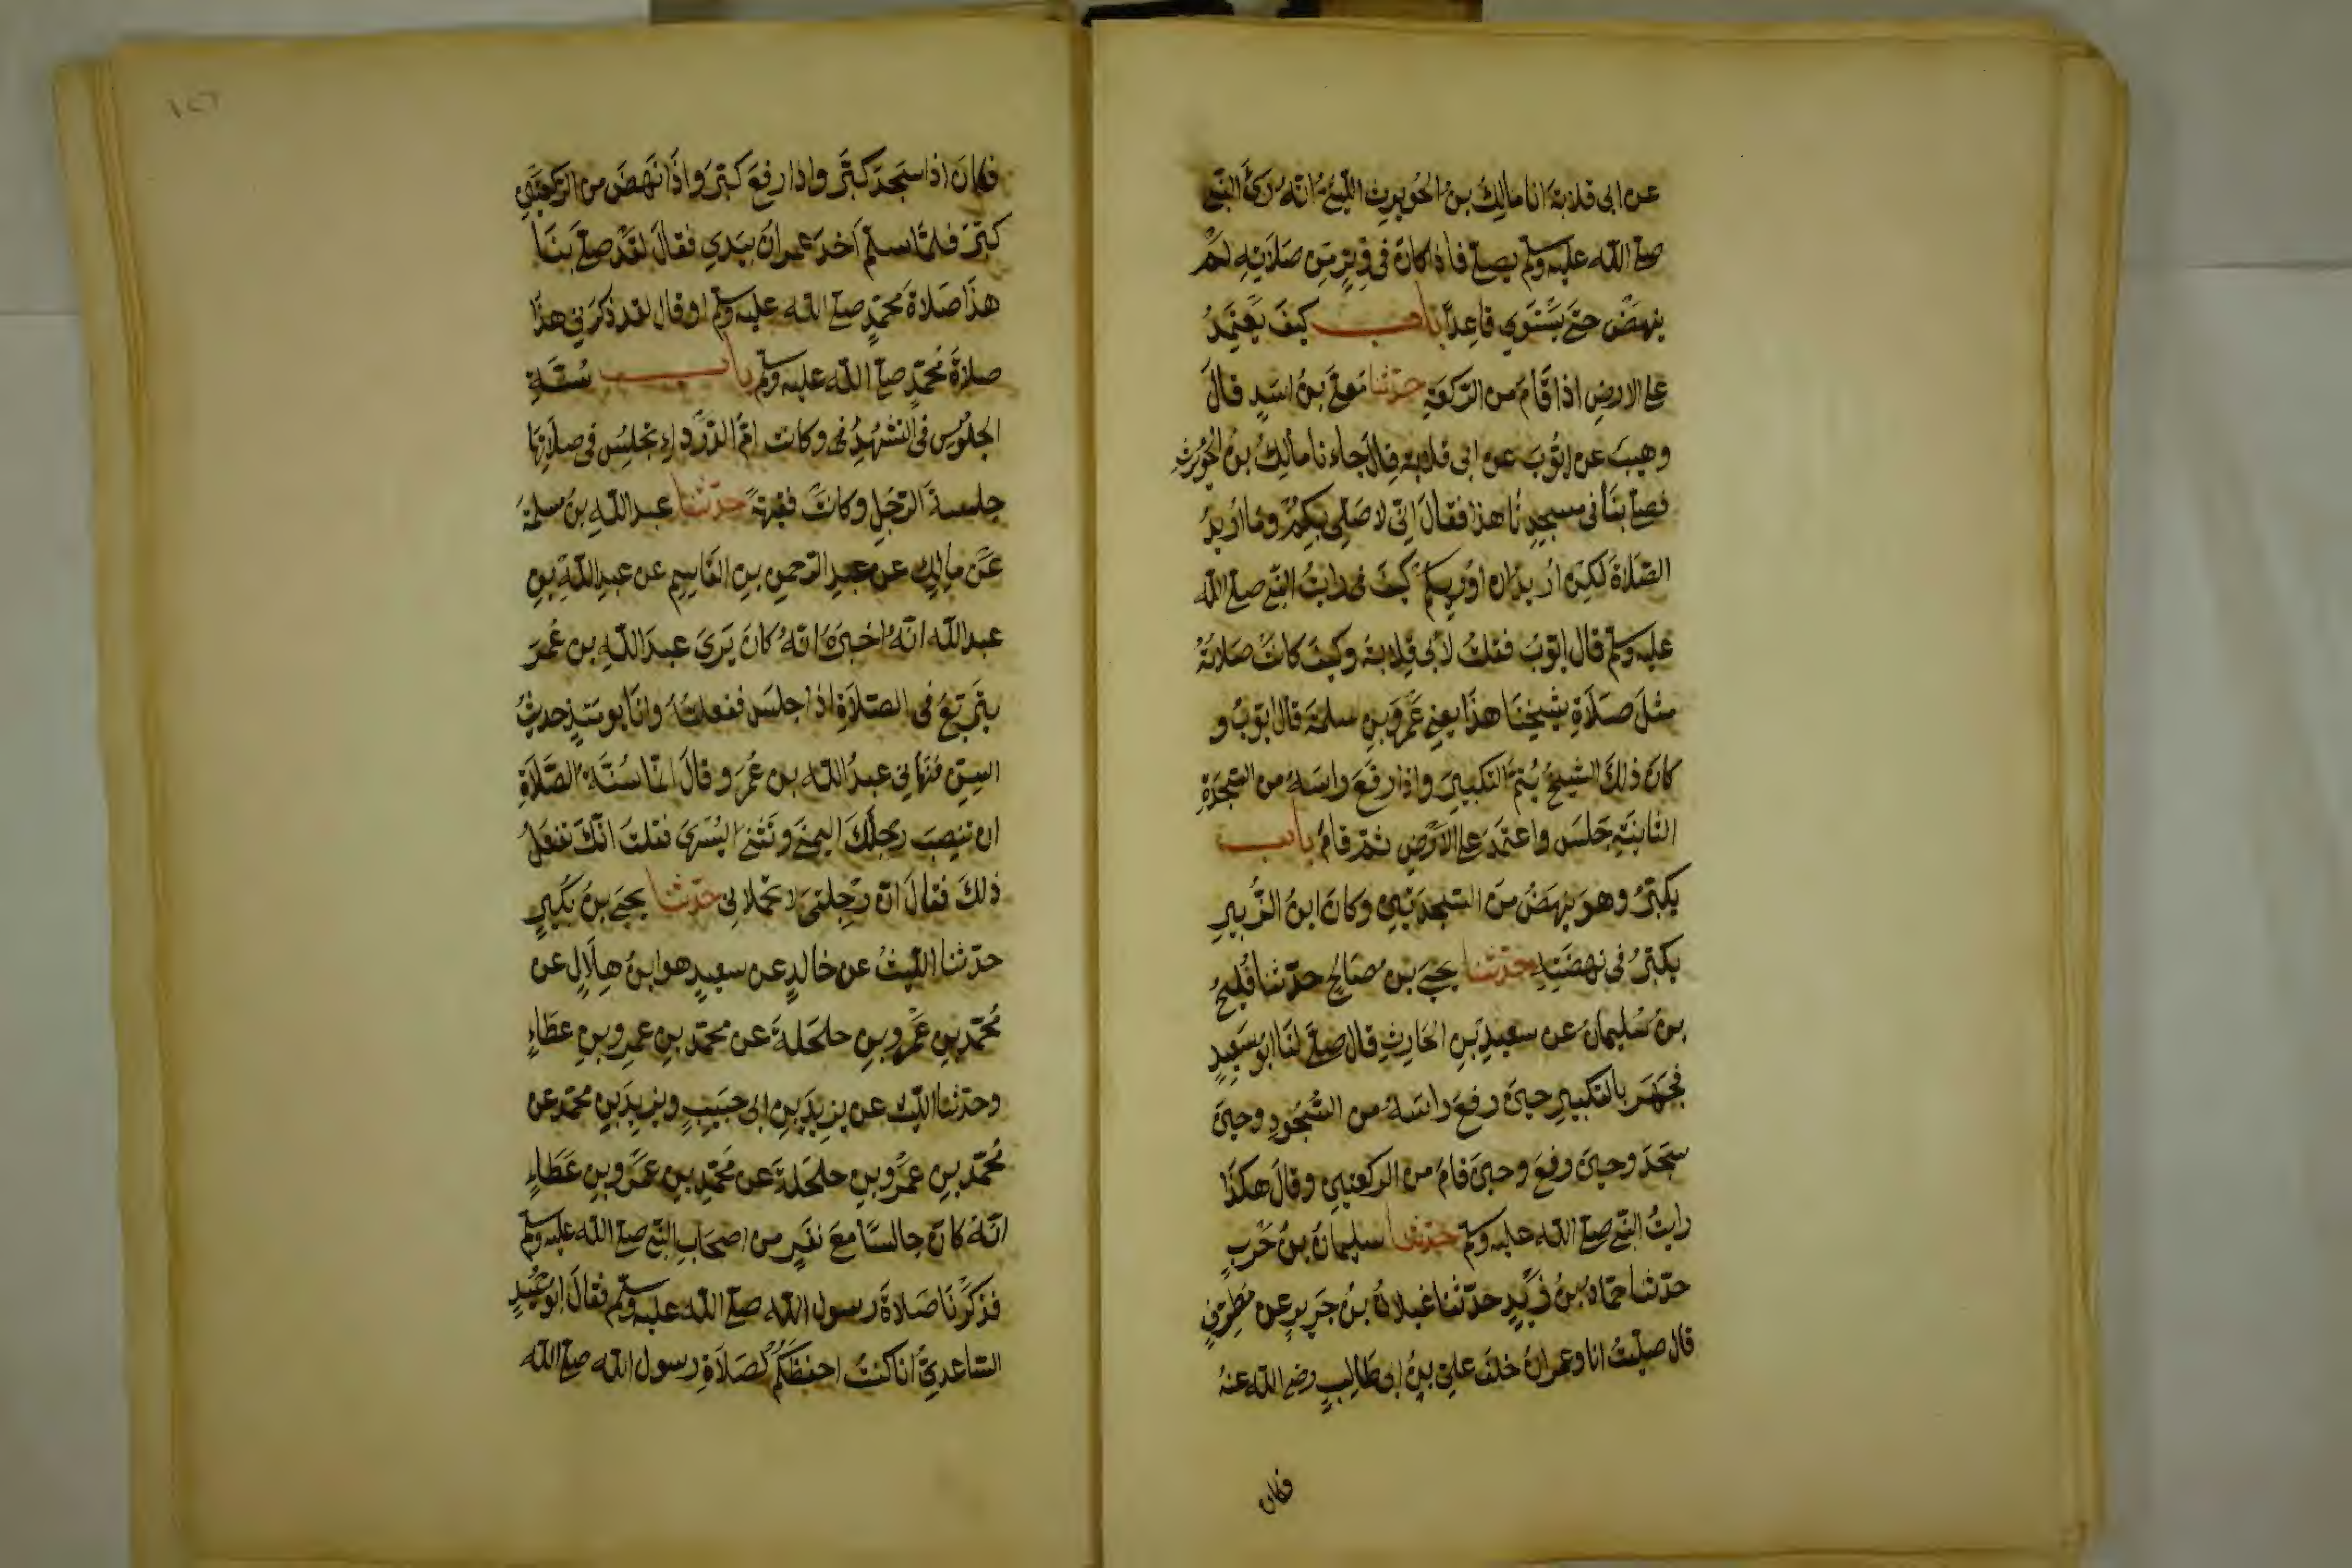 عن ابى قلابة انا مالك بن الحويرث الليثى انه راى النبى
صلى الله عليه وسلم يصلى فاذا كان فى وتر من صلاته لم
ينهض حتى يستوي قاعدا باب كيف يعتمد
على الارض اذا قام من الركعة حدثنا معلى بن اسد قال
وهيب عن ايوب عن ابى قلابة قال جاءنا مالك بن الحويرث
فصلى بنا فى مسجدنا هذا فقال انى لاصلى بكم وما اريد
الصلاة لكن اريد ان اوريكم كيف رايت النبى صلى الله
عليه وسلم قال ايوب فقلت لابى قلابة وكيف كانت صلاته
مثل صلاة شيخنا هذا يعنى عمرو بن سلمة قال ايوب و
كان ذلك الشيخ يتم التكبير واذا رفع راسه من السجدة
الثانية جلس واعتمد على الارض ثم قام باب
يكبر وهو ينهض من السجدتين وكان ابن الزبير
يكبر فى نهضته حدثنا يحيى بن صالح حدثنا فليح
بن سليمان عن سعيد بن الحارث قال صلى لنا ابو سعيد
فجهر بالتكبير حين رفع راسه من السجود وحين
سجد وحين رفع وحين قام من الركعتين وقال هكذا
رايت النبى صلى الله عليه وسلم حدثنا سليمان بن حرب
حدثنا حماد بن زيد حدثنا غيلان بن جرير عن مطرف
قال صليت انا وعمران خلف على بن ابى طالب رضى الله عنه
فكان
١٥٢
فكان اذا سجد كبر واذا رفع كبر واذا نهض من الركعتين
كبر فلما سلم اخذ عمران بيدي فقال لقد صلى بنا
هذا صلاة محمد صلى الله عليه وسلم او قال لقد ذكرنى هذا
صلاة محمد صلى الله عليه وسلم باب سنة
الجلوس فى التشهد وكانت ام الدرداء تجلس فى صلاتها
جلسة الرجل وكانت فقيهة حدثنا عبد الله بن مسلمة
عن مالك عن عبد الرحمن بن القاسم عن عبد الله بن
عبد الله انه اخبره انه كان يرى عبد الله بن عمر
يتربع فى الصلاة اذا جلس ففعلته وانا يومئذ حديث
السن فنهانى عبد الله بن عمر وقال انما سنة الصلاة
ان تنصب رجلك اليمنى وتثنى اليسرى فقلت انك تفعل
ذلك فقال ان رجلى لا تحملانى حدثنا يحيى بن بكير
حدثنا الليث عن خالد عن سعيد هو ابن هلال عن
محمد بن عمرو بن حلحلة عن محمد بن عمرو بن عطاء
وحدثنا الليث عن يزيد بن ابى حبيب ويزيد بن محمد عن
محمد بن عمرو بن حلحلة عن محمد بن عمرو بن عطاء
انه كان جالسا مع نفر من اصحاب النبى صلى الله عليه وسلم
فذكرنا صلاة رسول الله صلى الله عليه وسلم فقال ابو حميد
الساعدي انا كنت احفظكم لصلاة رسول الله صلى الله